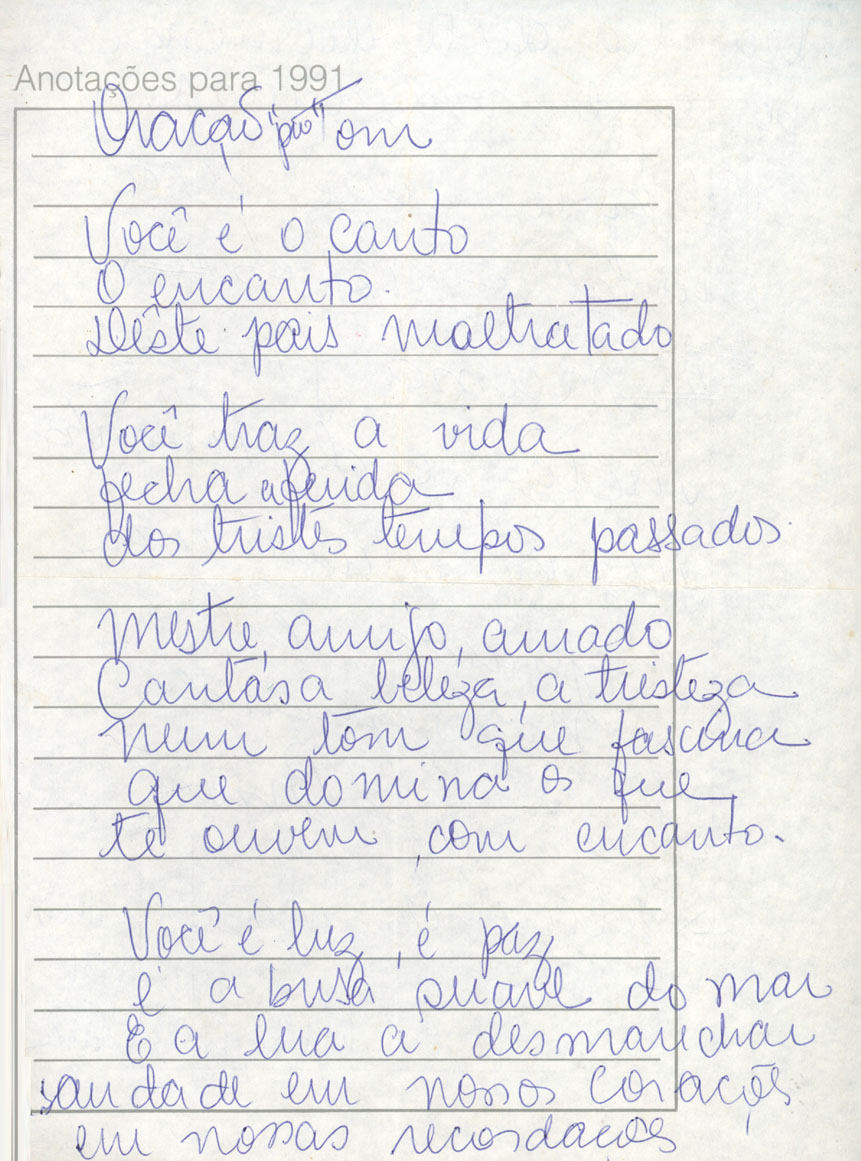 Anotações para 1991
Oração "pro" Tom
Você é o canto
O encanto.
Dêste país maltratado
Você traz a vida
fecha a ferida
dos tristes tempos passados.
Mestre, amigo, amado
Cantas a beleza, a tristeza
num tom que fascina
que domina os que
te ouvem, com encanto.
Você é luz, é paz
é a brisa suave do mar
E a lua a desmanchar
saudade em nossos corações
em nossas recordações